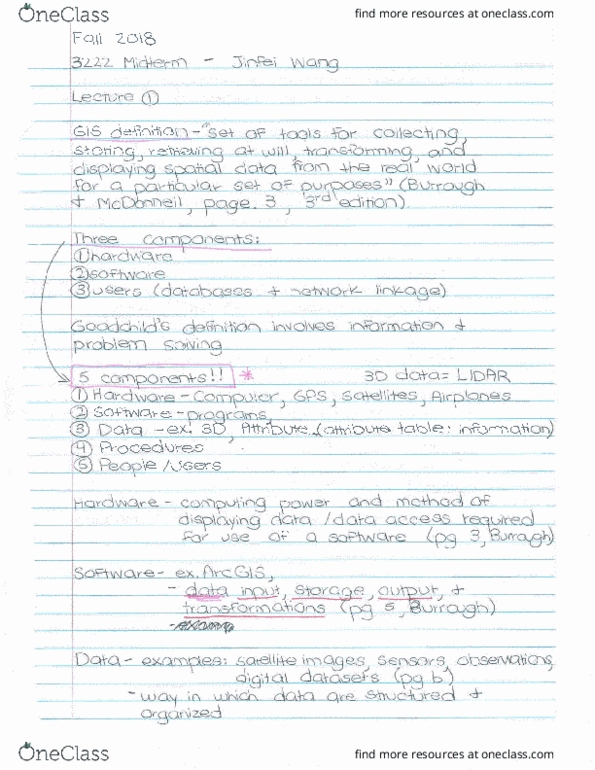 OneClass
find more resources at oneclass.com
Fall 2018
3222 Midterm - Jinfei Wang
Lecture ①
GIS definition - "set of tools for collecting,
storing, retrieving at will, transforming, and
displaying spatial data from the real world
for a particular set of purposes" (Burrough
+ McDonnell, page. 3, 3rd edition).
Three components:
① hardware
② software
③ users (databases + network linkage)
Goodchild's definition involves information +
problem solving
5 components!! * 3D data = LIDAR
① Hardware - Computer, GPS, Satellites, Airplanes
② Software - programs,
③ Data - ex. 3D, Attribute (attribute table: information)
④ Procedures
⑤ People/Users
Hardware - computing power and method of
displaying data/data access required
for use of a software (pg 3, Burrough)
Software - ex. ArcGIS,
- data input, storage, output, +
transformations (pg 5, Burrough)
Data - examples: satellite images, sensors, observations,
digital datasets (pg 6)
- way in which data are structured +
organized
OneClass
find more resources at oneclass.com